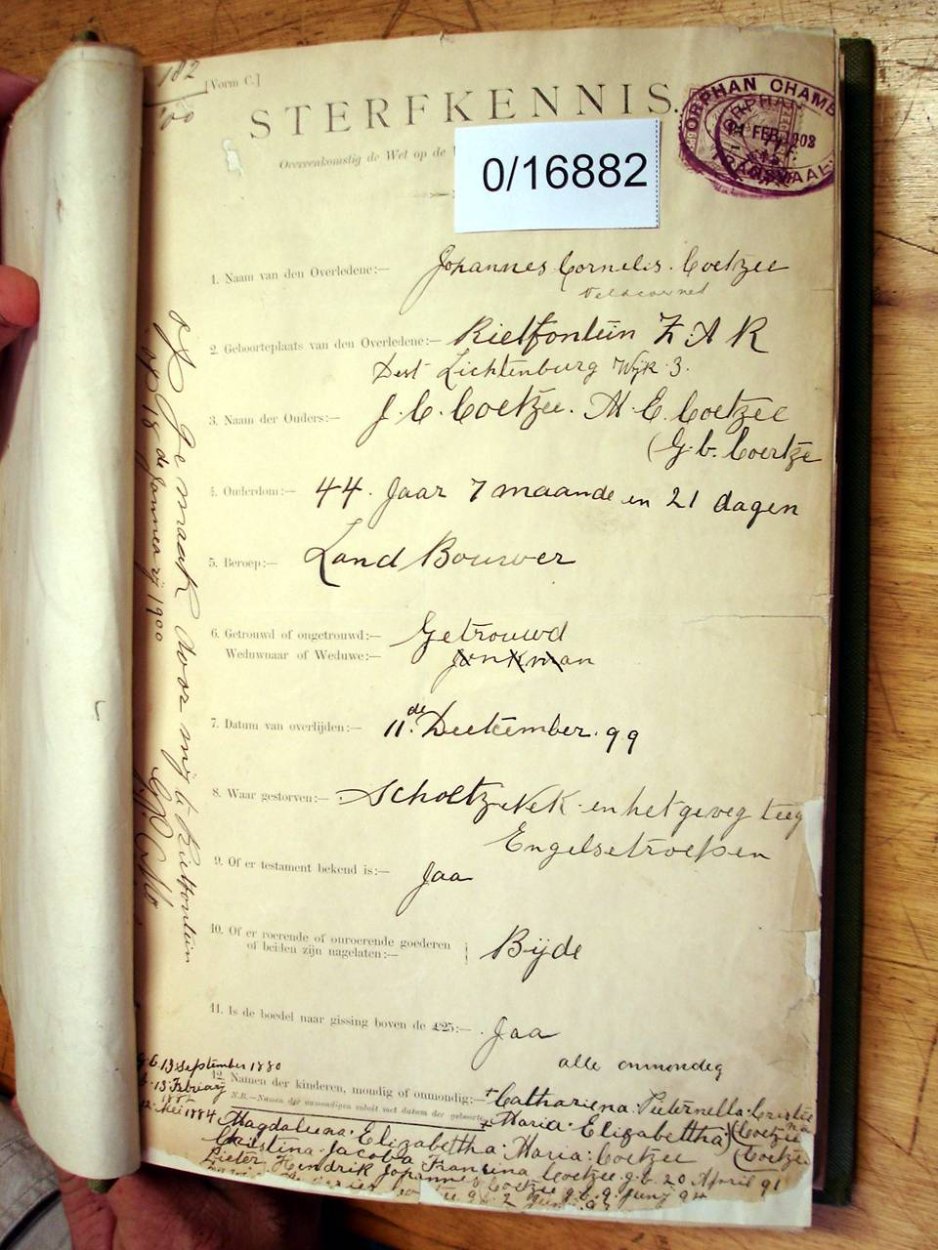 182
[Vorm C.]
00
STERFKENNIS.
ORPHAN CHAMB
FEB 1903
TRANSVAAL
Overeenkomstig de Wet op de
0/16882
1. Naam van den Overledene:— Johannes Cornelis. Coetzee
Veldcornet
2. Geboorteplaats van den Overledene:— Rietfontein Z A R
Dest Lichtenburg Wyk 3.
3. Naam der Ouders:— J. C. Coetzee. M. E. Coetzee
(G. b. Coertze
4. Ouderdom:— 44. Jaar 7 maande en 21 dagen
5. Beroep:— Land Bouwer
6. Getrouwd of ongetrouwd:— Getrouwd
Weduwnaar of Weduwe:—
7. Datum van overlijden:— 11de Deetember. 99
8. Waar gestorven:— Scholtz Nek en het geveg teeg
Engelse troepen
9. Of er testament bekend is:— Jaa
10. Of er roerende of onroerende goederen
of beiden zijn nagelaten:— Bijde
11. Is de boedel naar gissing boven de £25:— Jaa
alle onmondig
12. Namen der kinderen, mondig of onmondig:— Cathariena. Pieternella. Cristie
na
N.B.—Namen der onmondigen voluit met datum der geboorte Maria. Elizabettha (Coetzee
Magdaleena. Elizabettha Maria. Coetzee (Coetzee
Christina. Jacoba Francina Coetzee g.b. 20 April 91
Pieter Hendrik Johannes Coetzee g.b. 9 Juny 94
13 September 1880
13 Febriearij
1882
Mei 1884
Gemaakt door mij te Rietfontein
op 18 de Jannea rij 1900